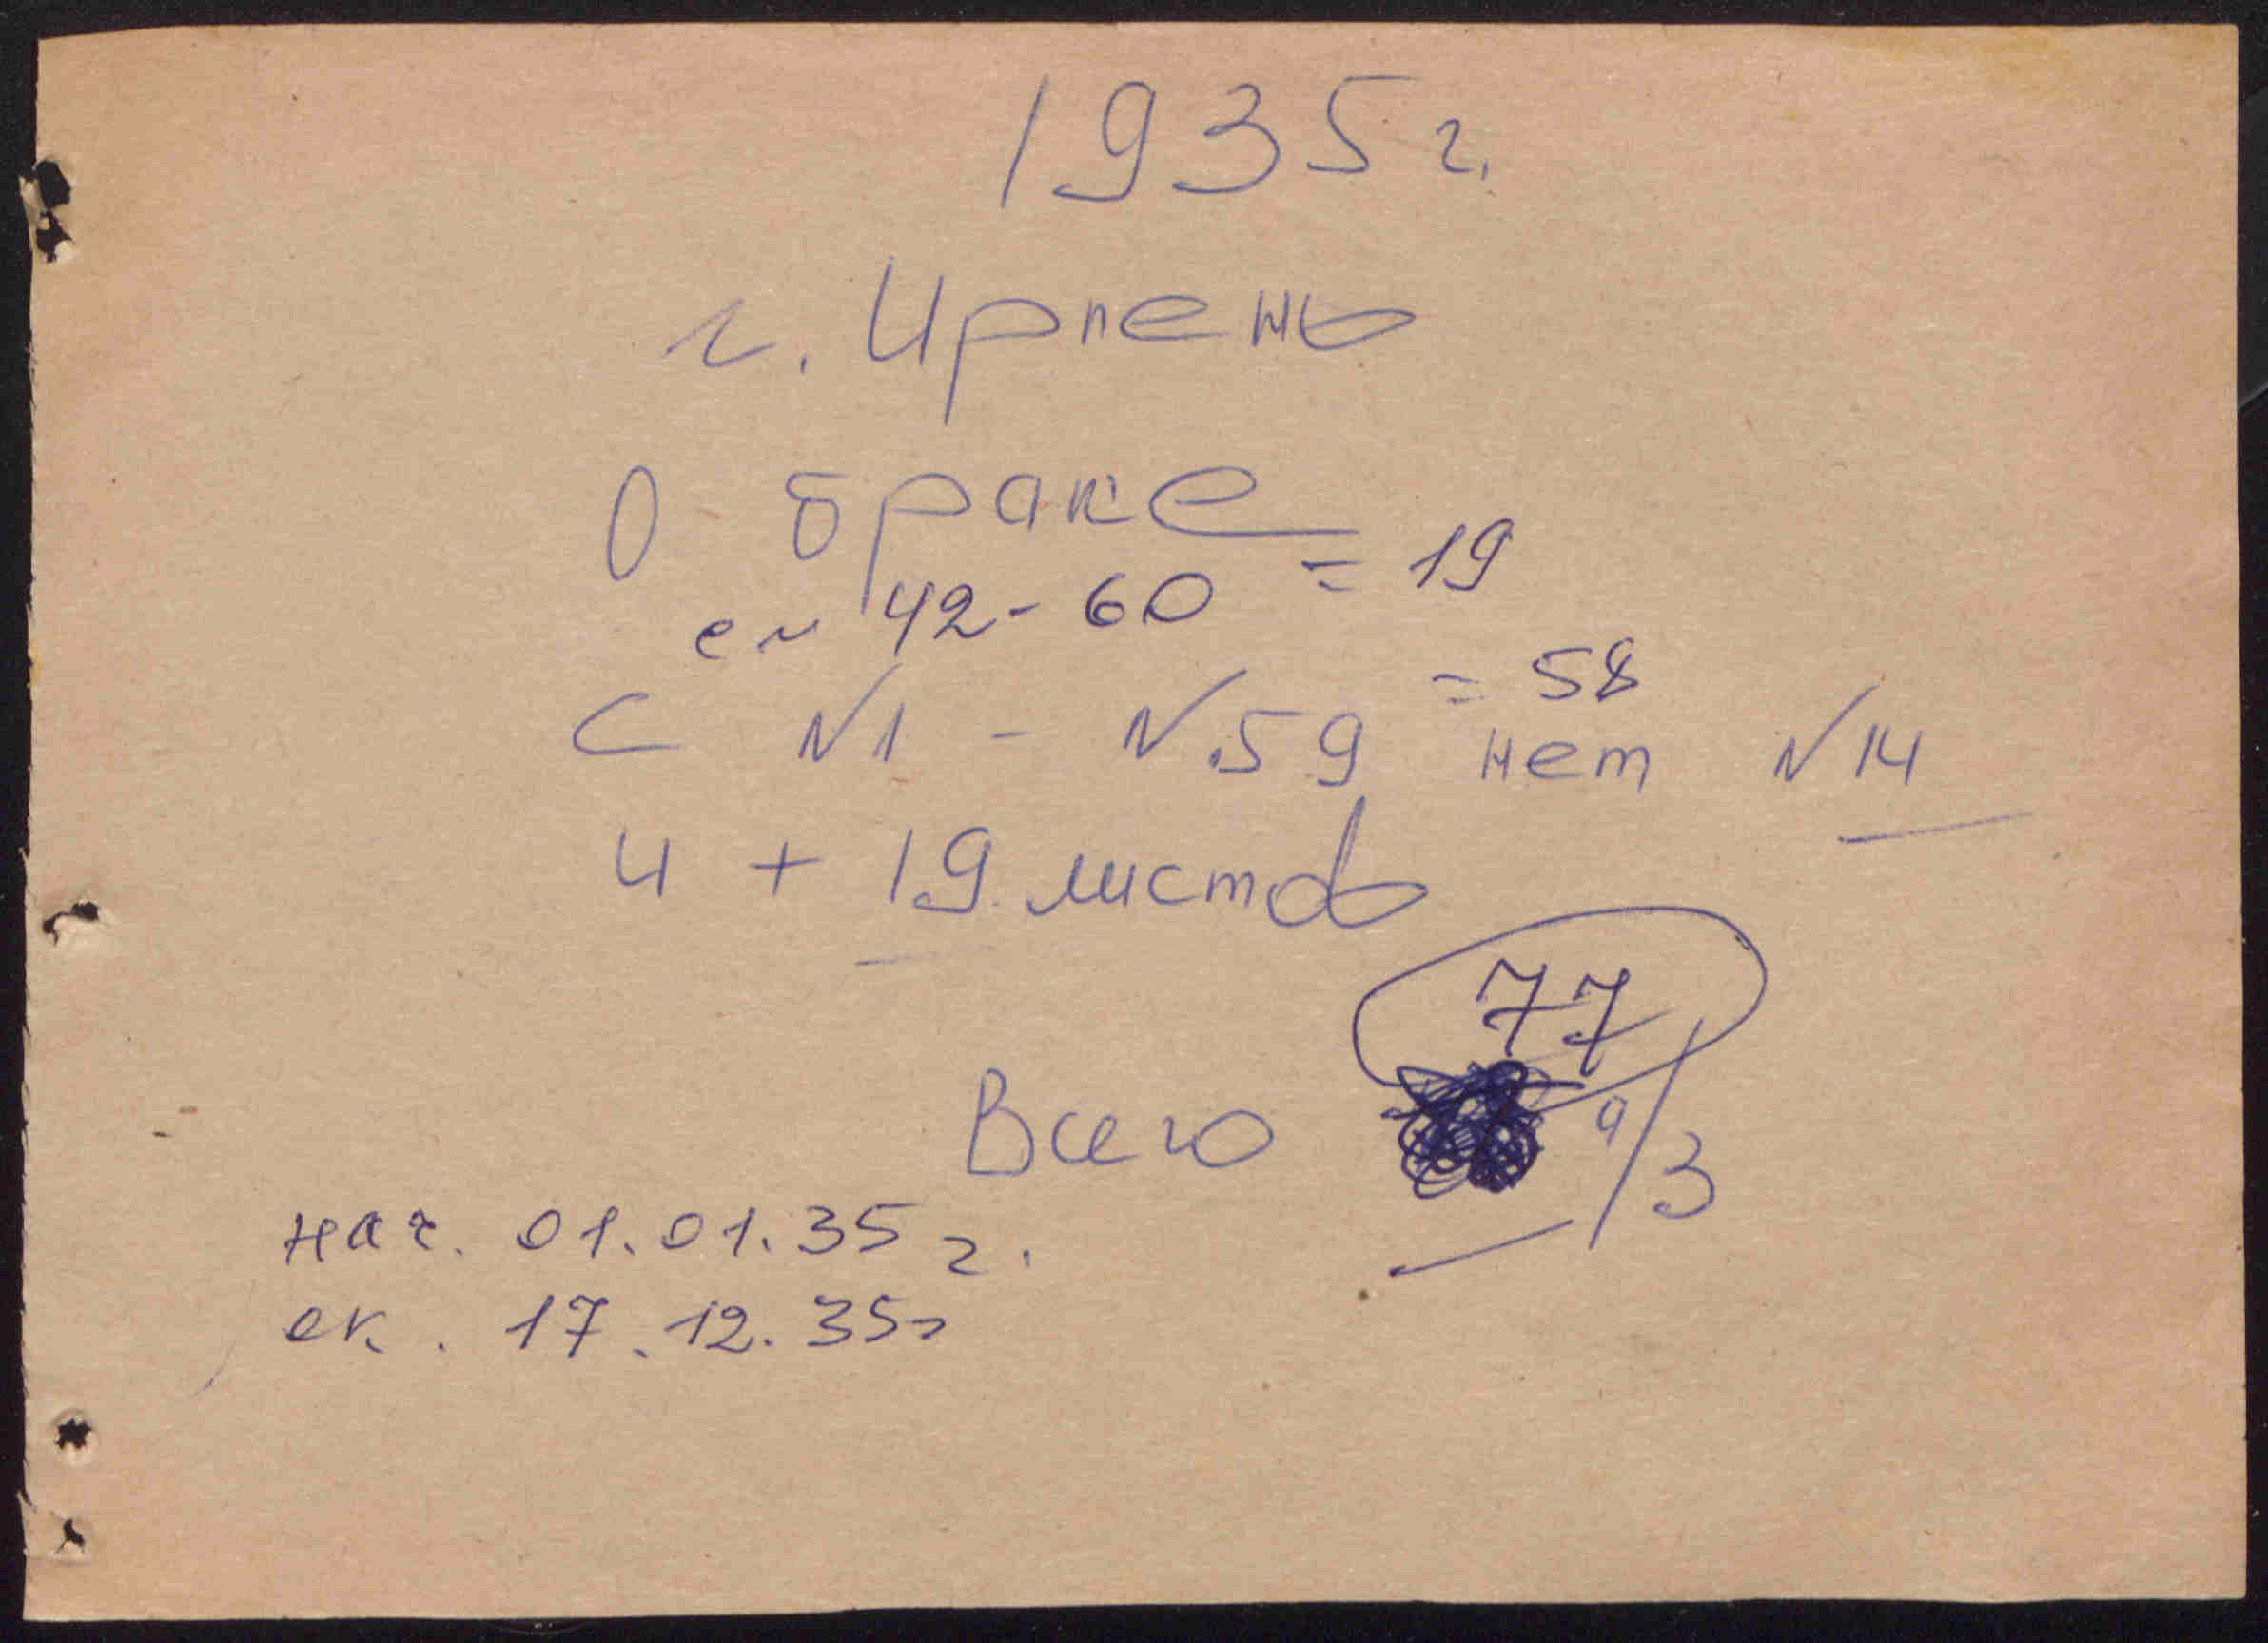 1935 г.
г. Ирпень
О браке
с N 42 - 60 = 19
С N1 - N.59 = 58
нет N14
И + 19 листов
77
Всего а/з
нач. 01.01.35 г.
ок. 17.12.35г